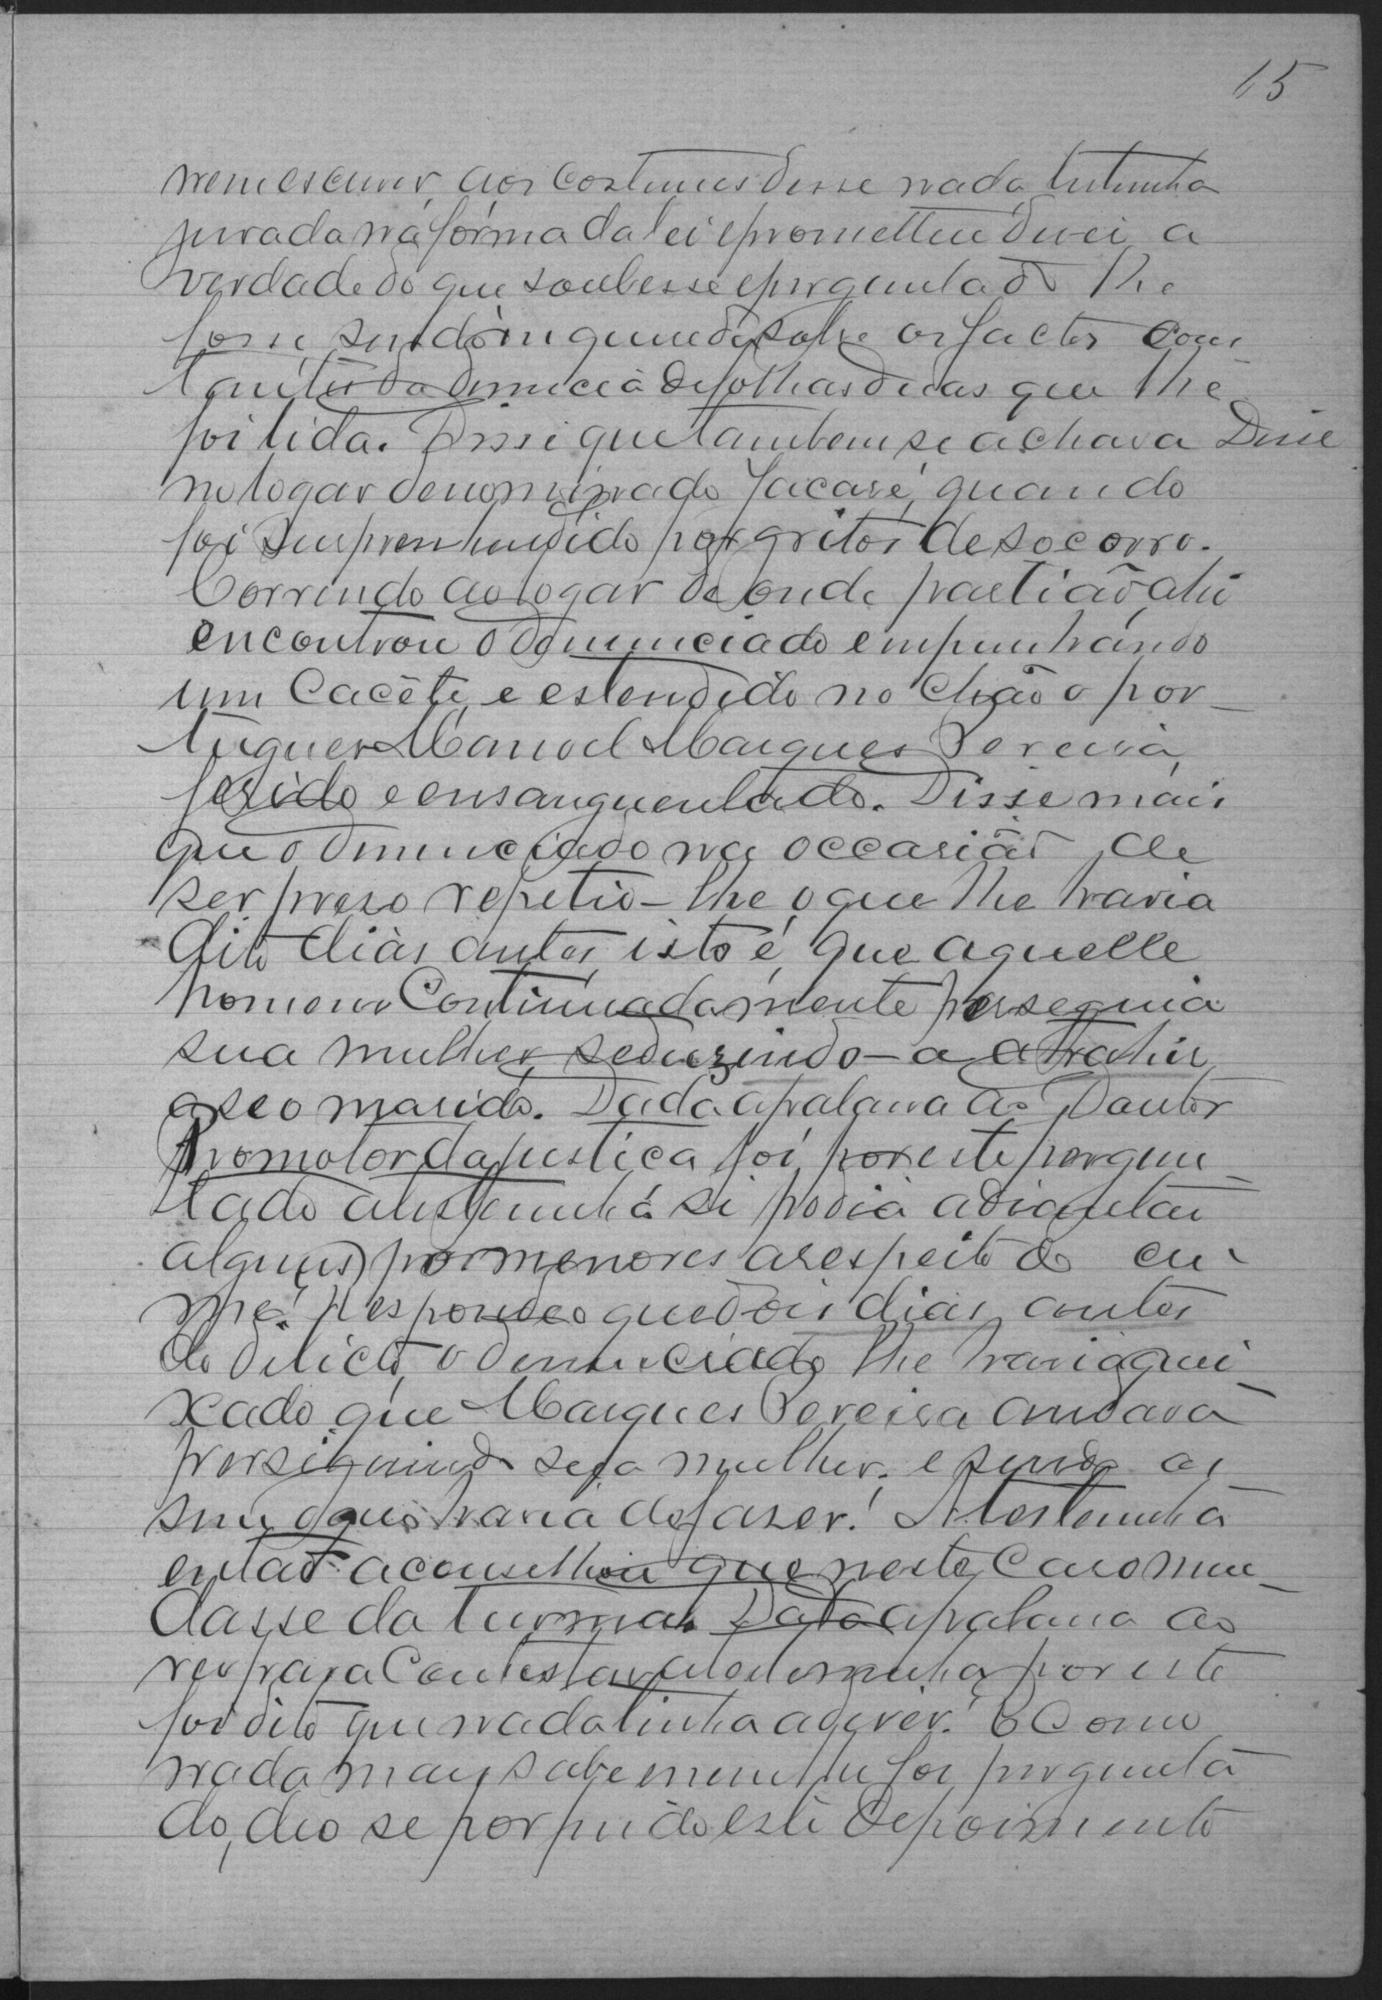 15
nem escrever, aos costumes disse nada, testemunha
jurada na fórma da lei e prometteu diser a
verdade do que soubesse e perguntado lhe
fosse, sendo inquerido sobre os factos cons-
tantes da denuncia de folhas duas que lhe
foi lida. Disse que tambem se achava Disse
no logar denominado Jacaré, quando
foi surprenhendido por gritos de socorro.
Correndo ao logar de onde partiaõ, ahi
encontrou o denunciado empunhando
um Cacête, e estendido no Chão o por-
tuguez Manoel Marques Pereira,
ferido e ensanguentado. Disse mais
que o denunciado na occasiaõ de
ser preso repetio-lhe o que lhe havia
dito dias antes, isto é, que aquelle
homem Continuadamente perseguia
sua mulher, seduzindo-a a trahir
a seo marido. Dada a palavra ao Doutor
Promotor da justiça foi por este pergun-
tado a testemunha si podia adiantar
alguns pormenores a respeito do cri-
me. Respondeo que dois dias antes
do delicto, o denunciado lhe havia quei-
xado que Marques Pereira andava
persiguindo sua mulher, e sendo as-
sim o que havia de faser! A testemunha
entaõ aconselhou que neste Caso mu-
dasse da turma. Dada a palavra ao
reo para Contestar a testemunha, por este
foi dito que nada tinha a diser. E Como
nada mais sabe nem lhe foi pergunta-
do, deo se por findo este depoimento